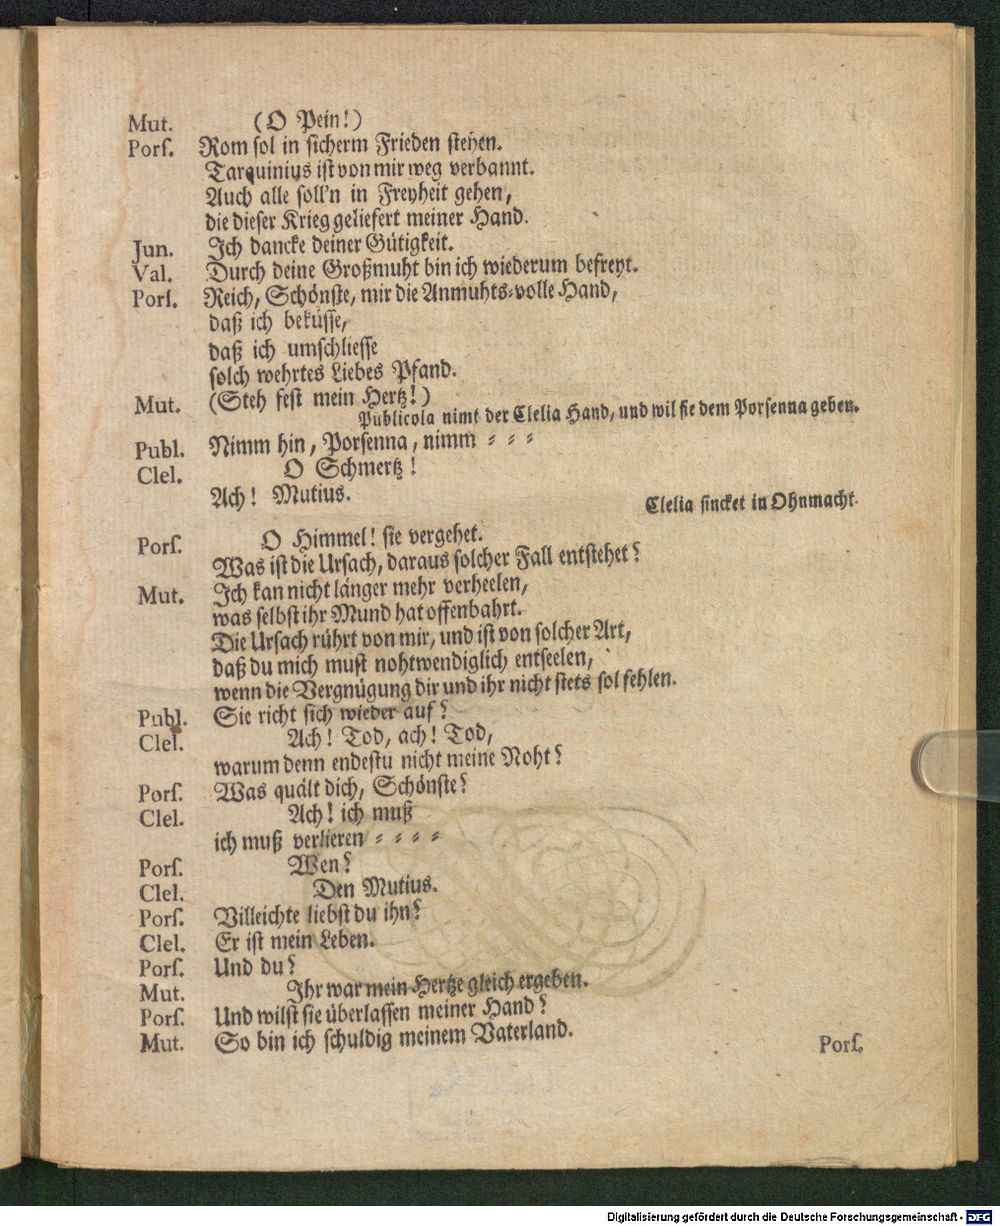 Mut. (O Pein!)
Porſ. Rom ſol in ſicherm Frieden ſtehen.
Tarquinius iſt von mir weg verbannt.
Auch alle ſoll'n in Freyheit gehen,
die dieſer Krieg geliefert meiner Hand.
Jun. Ich dancke deiner Gütigkeit.
Val. Durch deine Großmuht bin ich wiederum befreyt.
Porſ. Reich, Schönſte, mir die Anmuhts-volle Hand,
daß ich beküſſe,
daß ich umſchlieſſe
ſolch wehrtes Liebes Pfand.
Mut. (Steh feſt mein Hertz!)
Publicola nimt der Clelia Hand, und wil ſie dem Porſenna geben.
Publ. Nimm hin, Porſenna, nimm - - -
Clel. O Schmertz!
Ach! Mutius.
Clelia ſincket in Ohnmacht.
Porſ. O Himmel! ſie vergehet.
Was iſt die Urſach, daraus ſolcher Fall entſtehet?
Mut. Ich kan nicht länger mehr verheelen,
was ſelbſt ihr Mund hat offenbahrt.
Die Urſach rührt von mir, und iſt von ſolcher Art,
daß du mich muſt nohtwendiglich entſeelen,
wenn die Vergnügung dir und ihr nicht ſtets ſol fehlen.
Publ. Sie richt ſich wieder auf?
Clel. Ach! Tod, ach! Tod,
warum denn endeſtu nicht meine Noht?
Porſ. Was quält dich, Schönſte?
Clel. Ach! ich muß
ich muß verlieren - - - -
Porſ. Wen?
Clel. Den Mutius.
Porſ. Villeichte liebſt du ihn?
Clel. Er iſt mein Leben.
Porſ. Und du?
Mut. Ihr war mein Hertze gleich ergeben.
Porſ. Und wilſt ſie überlaſſen meiner Hand?
Mut. So bin ich ſchuldig meinem Vaterland.
Porſ.
Digitalisierung gefördert durch die Deutsche Forschungsgemeinschaft - DFG